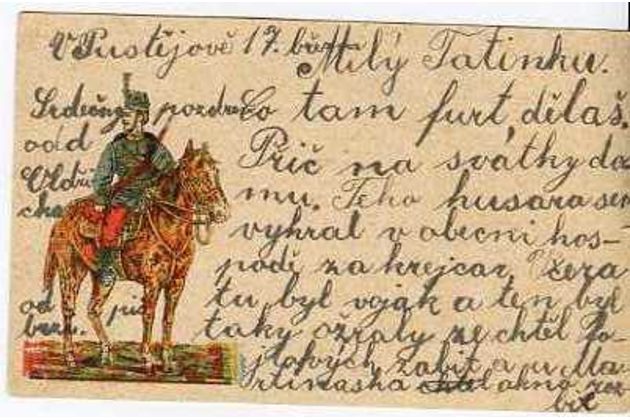 V Pustějově 17. břez
Milý Tatínku.
Srdečný pozdrav
od
Oldři
cha
Co tam furt děláš.
Přić na svátky da
mu. Teho husara sem
vyhral v obecni hos-
podě za krejcar. Včera
tu byl voják a ten byl
taky ožralý že chtěl Po-
jtových zabit a u Ma-
rtinaska okno roz-
bil
od piš
brzu.